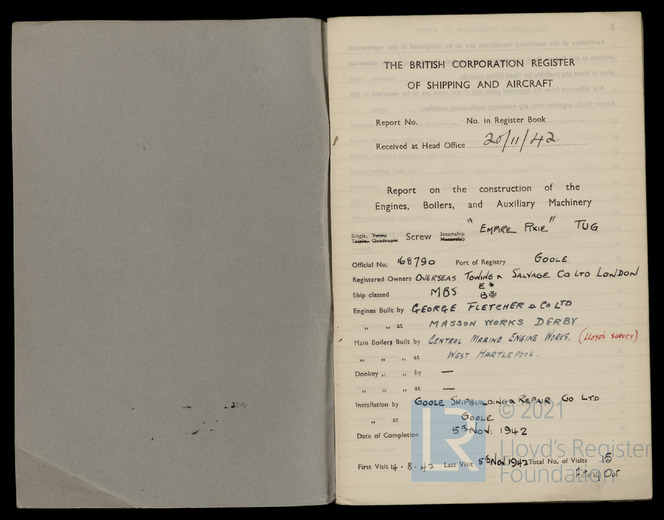 THE BRITISH CORPORATION REGISTER
OF SHIPPING AND AIRCRAFT
Report No. No. in Register Book
Received at Head Office 20/11/42.
Report on the construction of the
Engines, Boilers, and Auxiliary Machinery
"EMPIRE PIXIE" TUG
Single, Twin, Triple, Quadruple Screw Steamship Motorship
Official No. 168790 Port of Registry GOOLE
Registered Owners OVERSEAS TOWING & SALVAGE CO LTD LONDON
Ship classed MBS E* B*
Engines Built by GEORGE FLETCHER & CO LTD
„ „ at MASSON WORKS DERBY
Main Boilers Built by CENTRAL MARINE ENGINE WORKS. (LLOYD'S SURVEY)
„ „ „ at WEST HARTLEPOOL.
Donkey „ „ by —
„ „ „ at —
Installation by GOOLE SHIPBUILDING & REPAIR CO LTD
„ at GOOLE
Date of Completion 5th NOV. 1942
First Visit 14-8-42 Last Visit 5th NOV 1942 Total No. of Visits 15
Fitting Out
LR © 2021
Lloyd's Register
Foundation